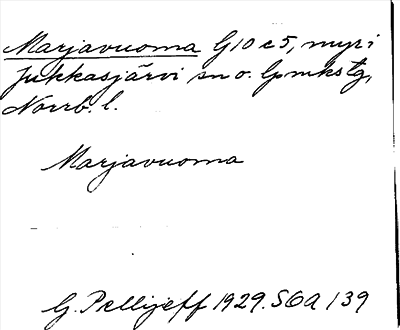 Marjavuoma G10 e5, myr i
Jukkasjärvi sn o. lpmkstg,
Norrb. l.
Marjavuoma
G. Pellijeff 1929. SOA 139